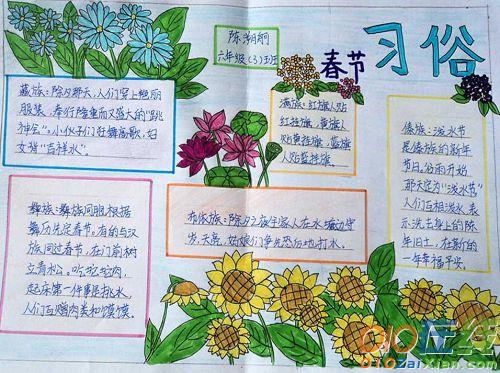 陈湖明
六年级（3）班
春节 习俗
藏族：除夕那天，人们穿上艳丽
服装，奉行隆重而又盛大的“跳
神会”。小伙子们狂舞高歌，妇
女背“吉祥水”。
满族：红旗人贴
红挂旗，黄旗人
贴黄挂旗，蓝旗
人贴蓝挂旗。
傣族：泼水节
是傣族的新年
节日。谷雨开始
那天定为“泼水节”
人们互相泼水，表
示洗去身上的陈
年旧土，在新的
一年幸福平安。
彝族：彝族同胞根据
彝历先定春节，有的与汉
族同过春节，在门前树
立青松。吃坨坨肉，
起床第一件事是挑水，
人们互赠肉类和馍馍。
布依族：除夕之夜全家人在火塘边守
岁，天亮，姑娘们争先恐后地打水。
010在线
010zaixian.com